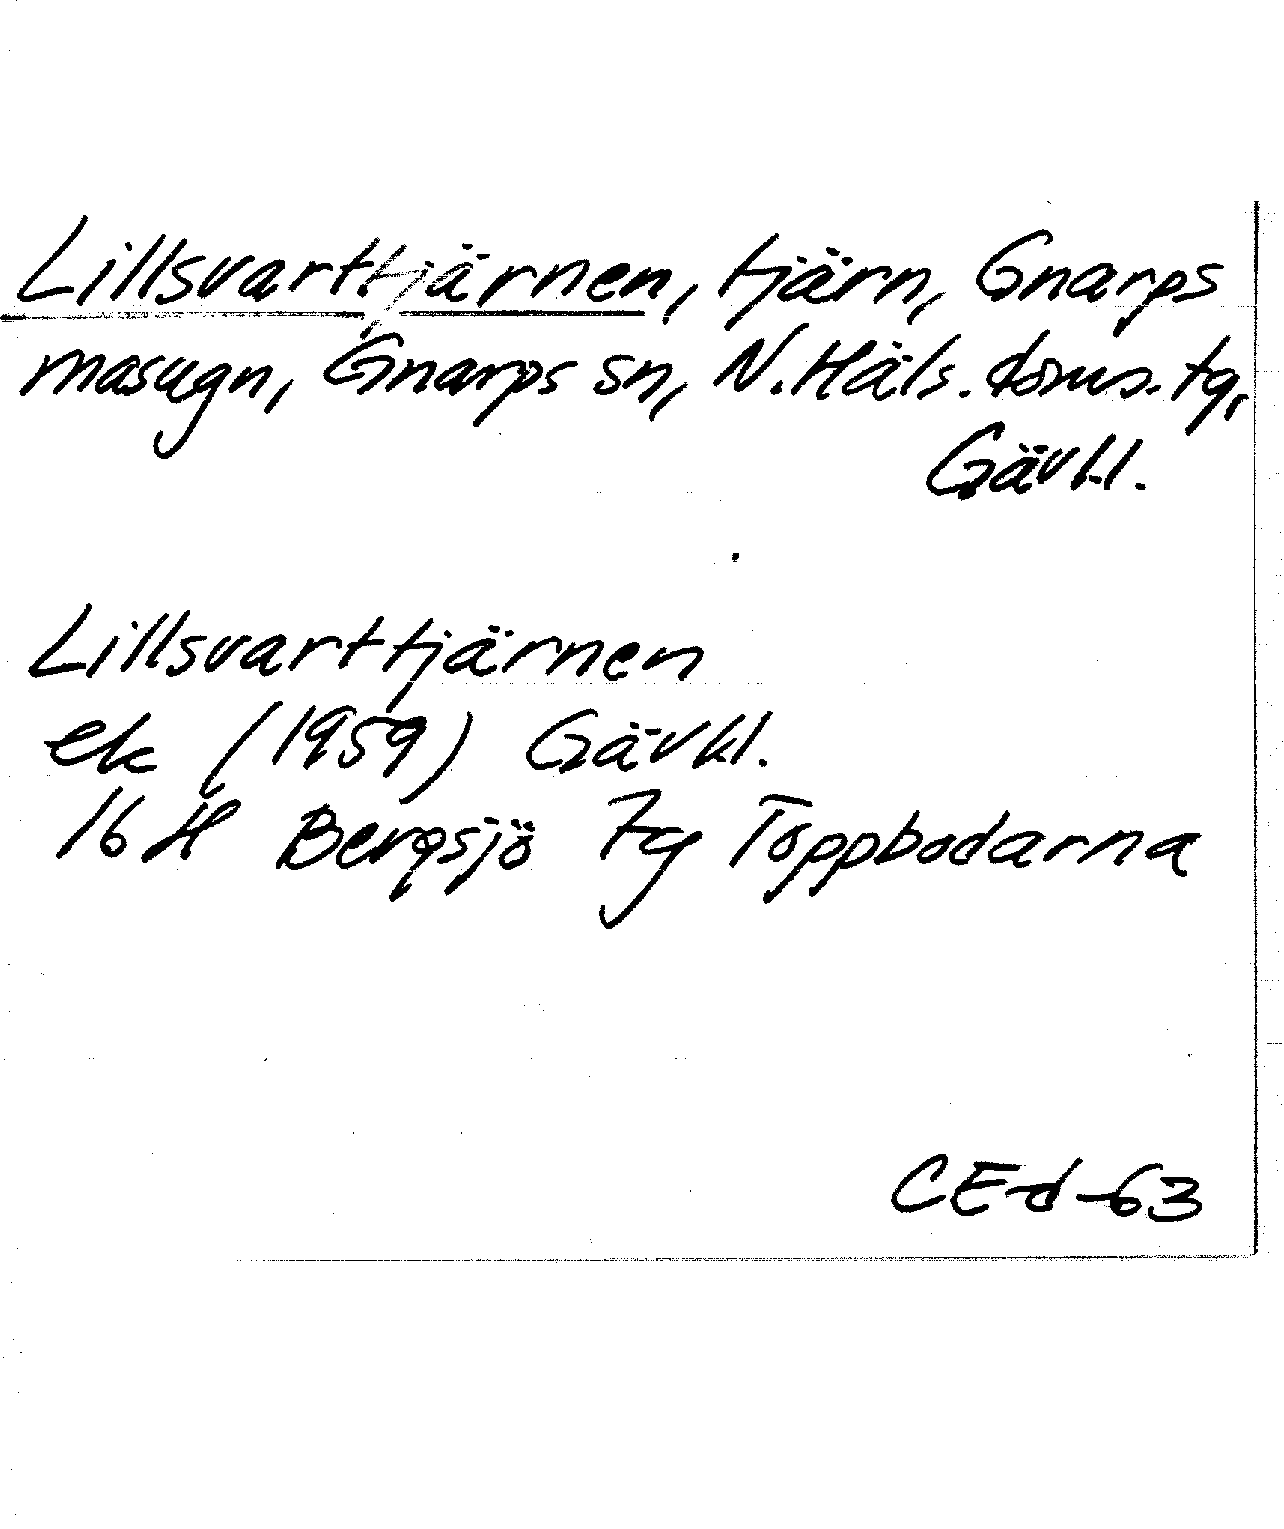 Lillsvarttjärnen, tjärn, Gnarps
masugn, Gnarps sn, N. Häls. doms. tg,
Gävl.l.
Lillsvarttjärnen
ek (1959) Gävkl.
16 H Bergsjö 7g Toppbodarna
CEd-63